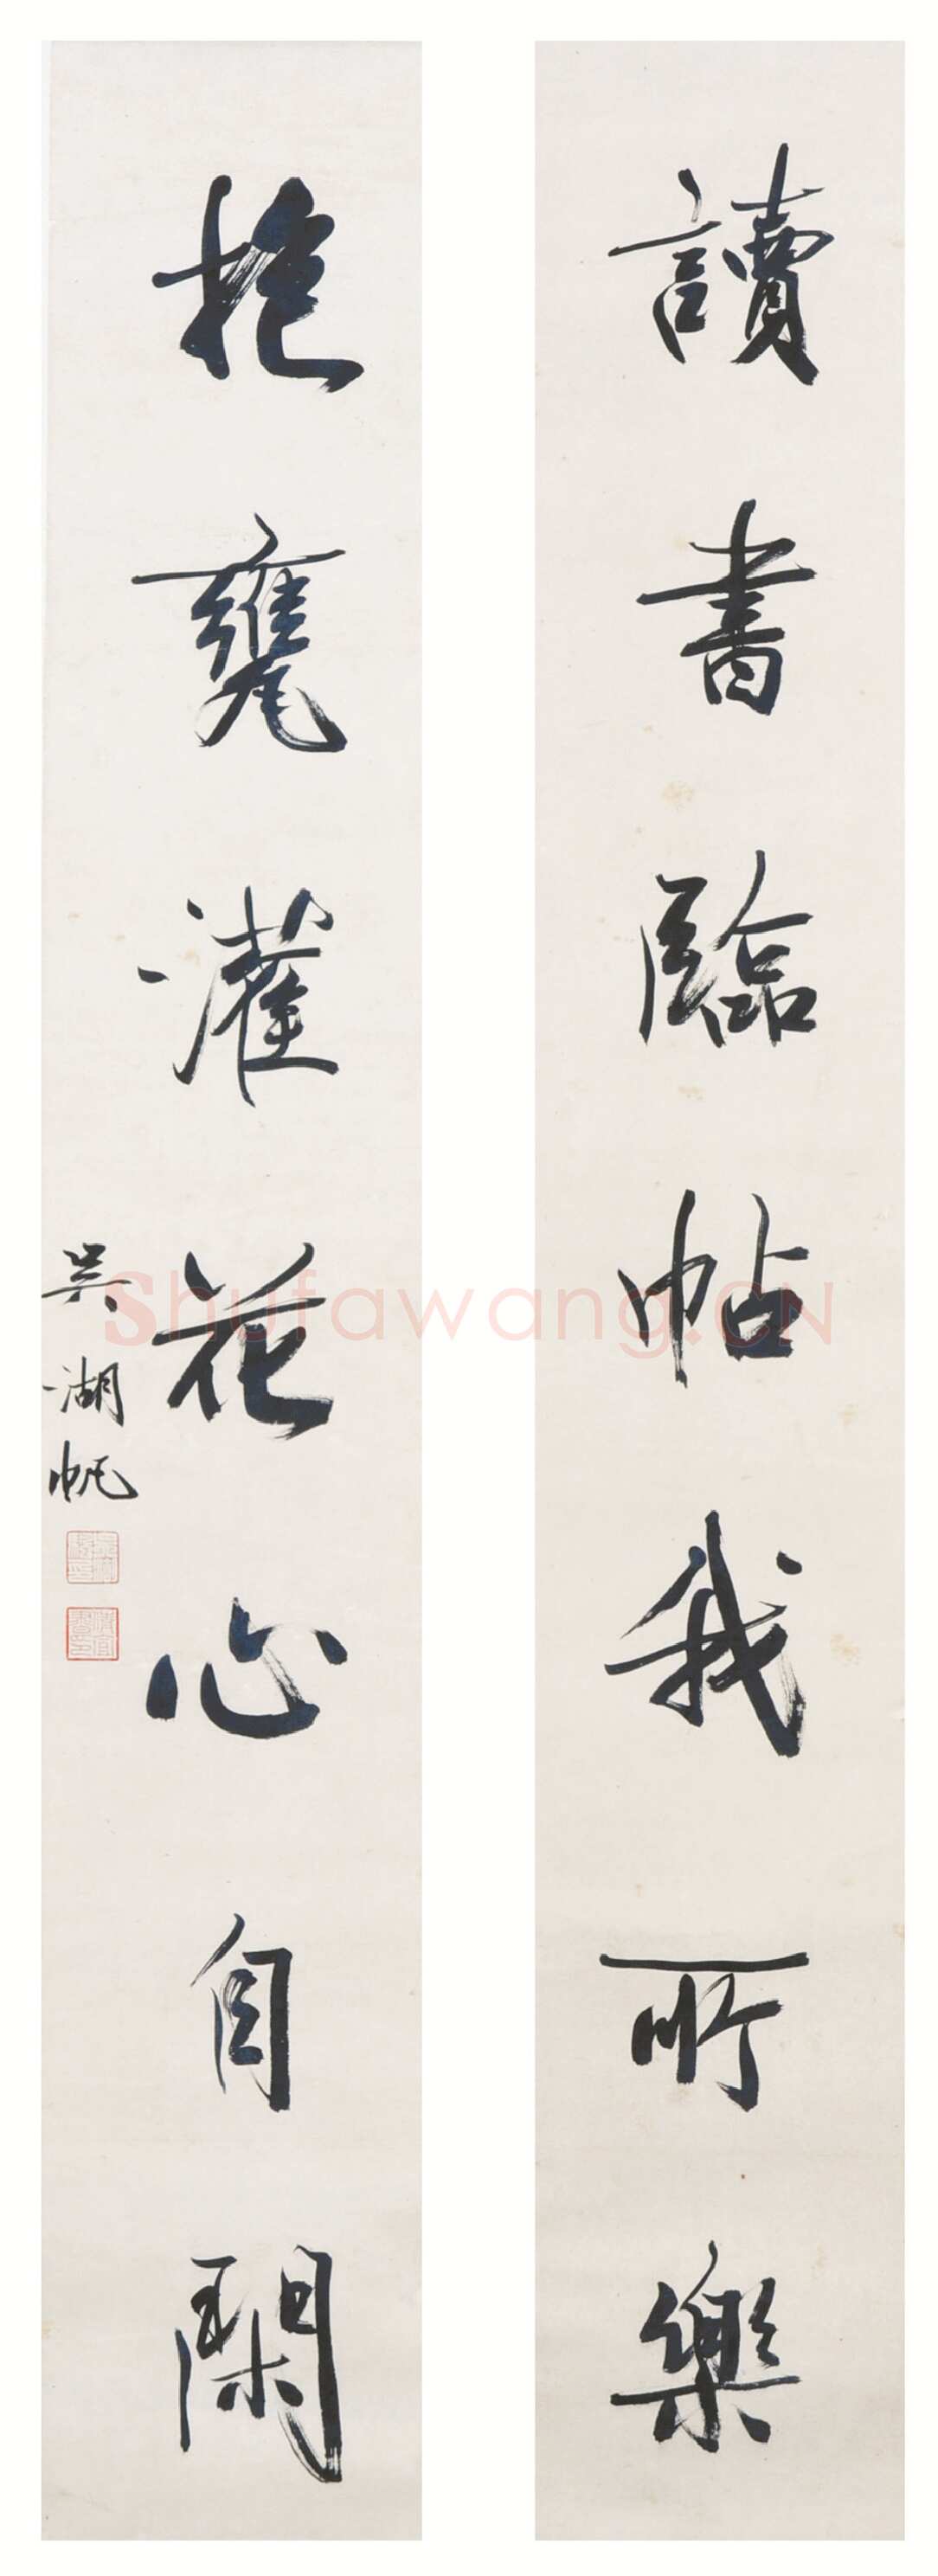 讀書臨帖我所樂
抱甕灌花心自閑
吳湖帆
Shufawang.CN